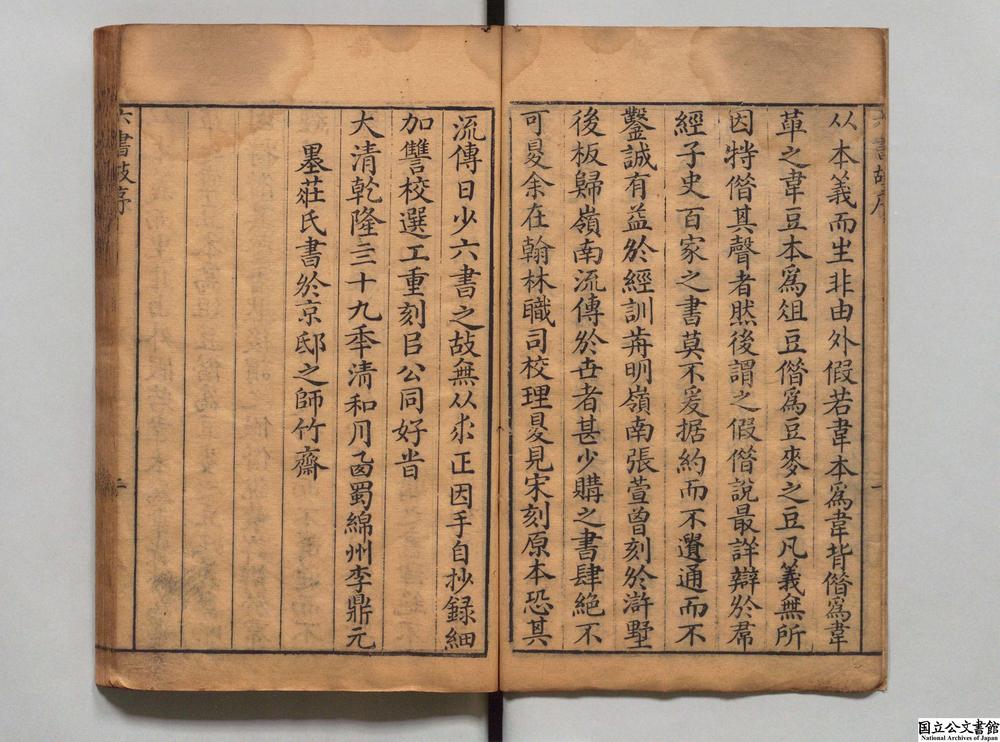 六書故序 一
从本義而生非由外假若韋本爲韋背借爲韋
革之韋豆本爲俎豆借爲豆麥之豆凡義無所
因特借其聲者然後謂之假借說最詳辯於羣
經子史百家之書莫不爰据約而不遺通而不
鑿誠有益於經訓歬明嶺南張萱曾刻於滸墅
後板歸嶺南流傳於世者甚少購之書肆絕不
可㝵余在翰林職司校理㝵見宋刻原本恐其
流傳日少六書之故無从求正因手自抄録細
加讐校選工重刻㠯公同好旹
大清乾隆三十九秊清和月西蜀綿州李鼎元
墨莊氏書於京邸之師竹齋
六書故序 二
国立公文書館
National Archives of Japan